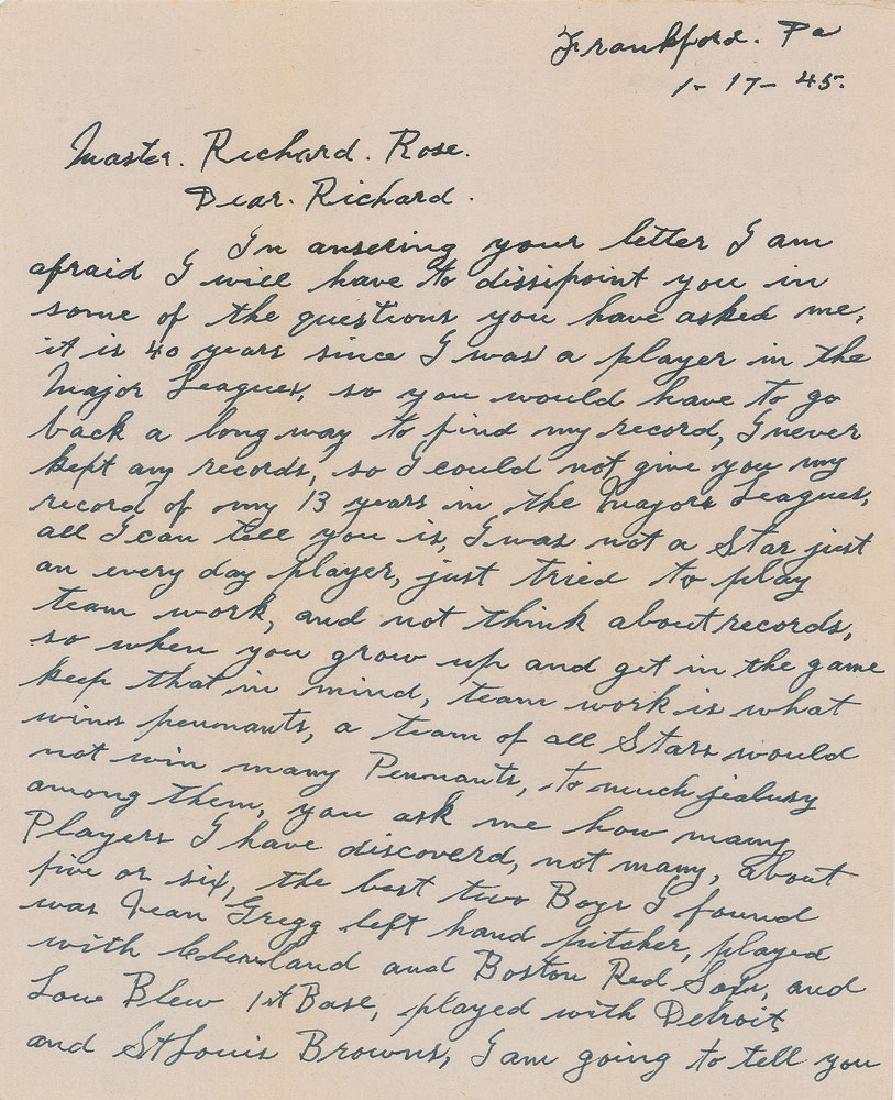 Frankford. Pa
1-17-45.
Master. Richard. Rose.
Dear. Richard.
In ansering your letter I am
afraid I will have to dissipoint you in
some of the questions you have asked me,
it is 40 years since I was a player in the
Major Leagues, so you would have to go
back a long way to find my record, I never
kept any records, so I could not give you my
record of my 13 years in the Majors Leagues,
all I can tell you is, I was not a Star just
an every day player, just tried to play
team work, and not think about records,
so when you grow up and get in the game
keep that in mind, team work is what
wins pennants, a team of all Stars would
not win many Pennants, to much jealousy
among them, you ask me how many
Players I have discoverd, not many, about
five or six, the best two Boys I found
was Vean Gregg left hand pitcher, played
with Cleveland and Boston Red Soxs, and
Lou Blew 1st Base, played with Detroit
and St Louis Browns, I am going to tell you